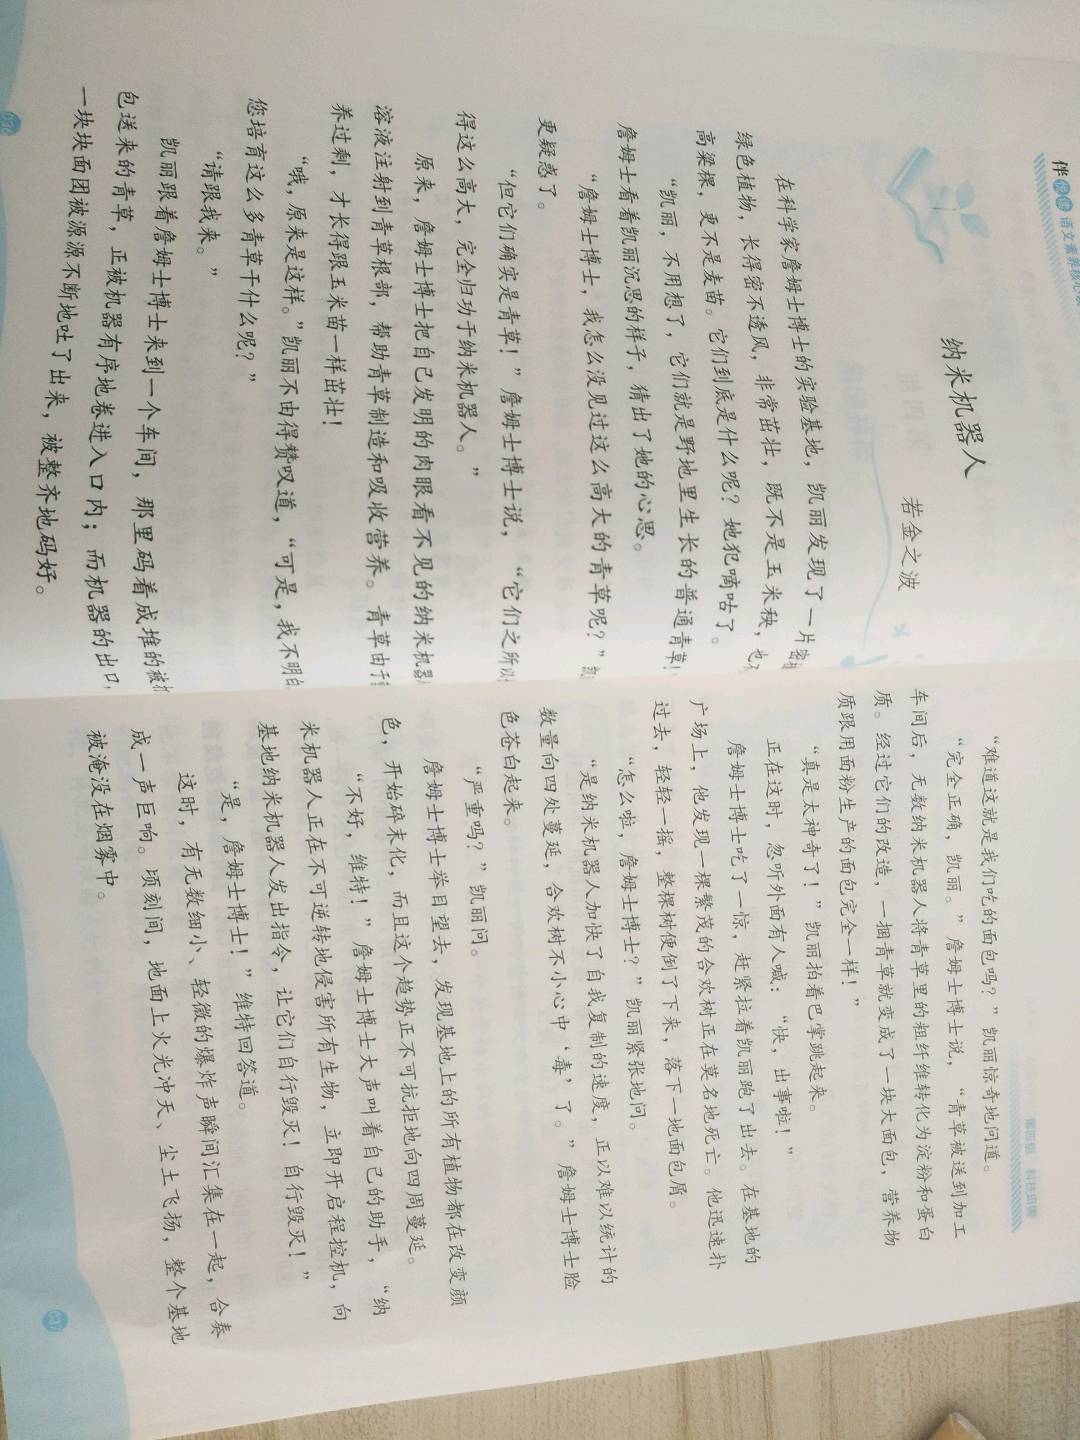 伴你读 语文素养核心读
纳米机器人
若金之波
在科学家詹姆士博士的实验基地，凯丽发现了一片密
绿色植物，长得密不透风，非常茁壮，既不是玉米秧，也
高粱棵，更不是麦苗。它们到底是什么呢？她犯嘀咕了。
“凯丽，不用想了，它们就是野地里生长的普通青草！
詹姆士看着凯丽沉思的样子，猜出了她的心思。
“詹姆士博士，我怎么没见过这么高大的青草呢？”凯
更疑惑了。
“但它们确实是青草！”詹姆士博士说，“它们之所以
得这么高大，完全归功于纳米机器人。”
原来，詹姆士博士把自己发明的肉眼看不见的纳米机器
溶液注射到青草根部，帮助青草制造和吸收营养。青草由于
养过剩，才长得跟玉米苗一样茁壮！
“哦，原来是这样。”凯丽不由得赞叹道，“可是，我不明白
您培育这么多青草干什么呢？”
“请跟我来。”
凯丽跟着詹姆士博士来到一个车间，那里码着成堆的被打
包送来的青草，正被机器有序地卷进入口内；而机器的出口，
一块块面团被源源不断地吐了出来，被整齐地码好。
036
第四组 科技
“难道这就是我们吃的面包吗？”凯丽惊奇地问道。
“完全正确，凯丽。”詹姆士博士说，“青草被送到加工
车间后，无数纳米机器人将青草里的粗纤维转化为淀粉和蛋白
质。经过它们的改造，一捆青草就变成了一块大面包，营养物
质跟用面粉生产的面包完全一样！”
“真是太神奇了！”凯丽拍着巴掌跳起来。
正在这时，忽听外面有人喊：“快，出事啦！”
詹姆士博士吃了一惊，赶紧拉着凯丽跑了出去。在基地的
广场上，他发现一棵繁茂的合欢树正在莫名地死亡。他迅速扑
过去，轻轻一摇，整棵树便倒了下来，落下一地面包屑。
“怎么啦，詹姆士博士？”凯丽紧张地问。
“是纳米机器人加快了自我复制的速度，正以难以统计的
数量向四处蔓延，合欢树不小心中‘毒’了。”詹姆士博士脸
色苍白起来。
“严重吗？”凯丽问。
詹姆士博士举目望去，发现基地上的所有植物都在改变颜
色，开始碎末化，而且这个趋势正不可抗拒地向四周蔓延。
“不好，维特！”詹姆士博士大声叫着自己的助手，“纳
米机器人正在不可逆转地侵害所有生物，立即开启程控机，向
基地纳米机器人发出指令，让它们自行毁灭！自行毁灭！”
“是，詹姆士博士！”维特回答道。
这时，有无数细小、轻微的爆炸声瞬间汇集在一起，合奏
成一声巨响。顷刻间，地面上火光冲天、尘土飞扬，整个基地
被淹没在烟雾中。
037